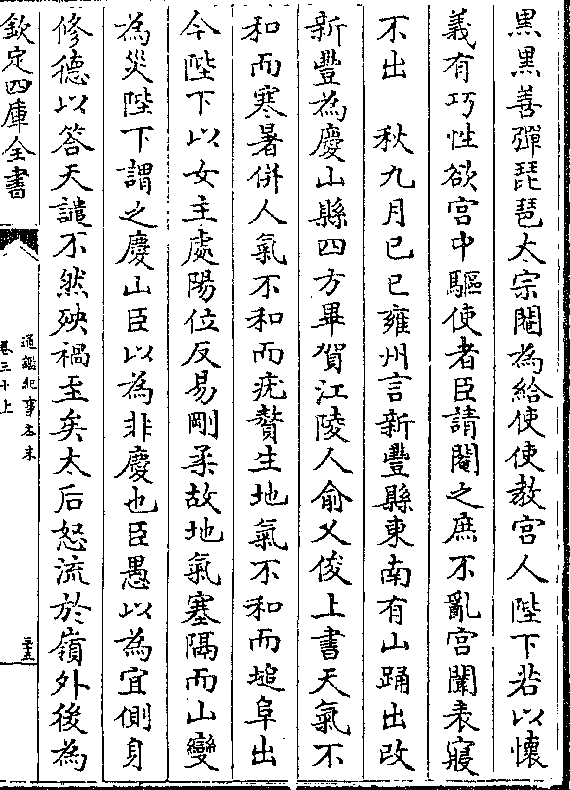 黒黒善彈琵琶太宗閹為給使使教宮人陛下若以懷
義有巧性欲宫中驅使者臣請閹之庶不亂宫闈表寢
不出　秋九月己巳雍州言新豐縣東南有山踊出改
新豐為慶山縣四方畢賀江陵人俞文俊上書天氣不
和而寒暑併人氣不和而疣贅生地氣不和而塠阜出
今陛下以女主處陽位反易剛柔故地氣塞隔而山變
為災陛下謂之慶山臣以為非慶也臣愚以為宜側身
修德以答天譴不然殃禍至矣太后怒流於嶺外後為
欽定四庫全書
通鑑紀事本末
卷三十上
三十五